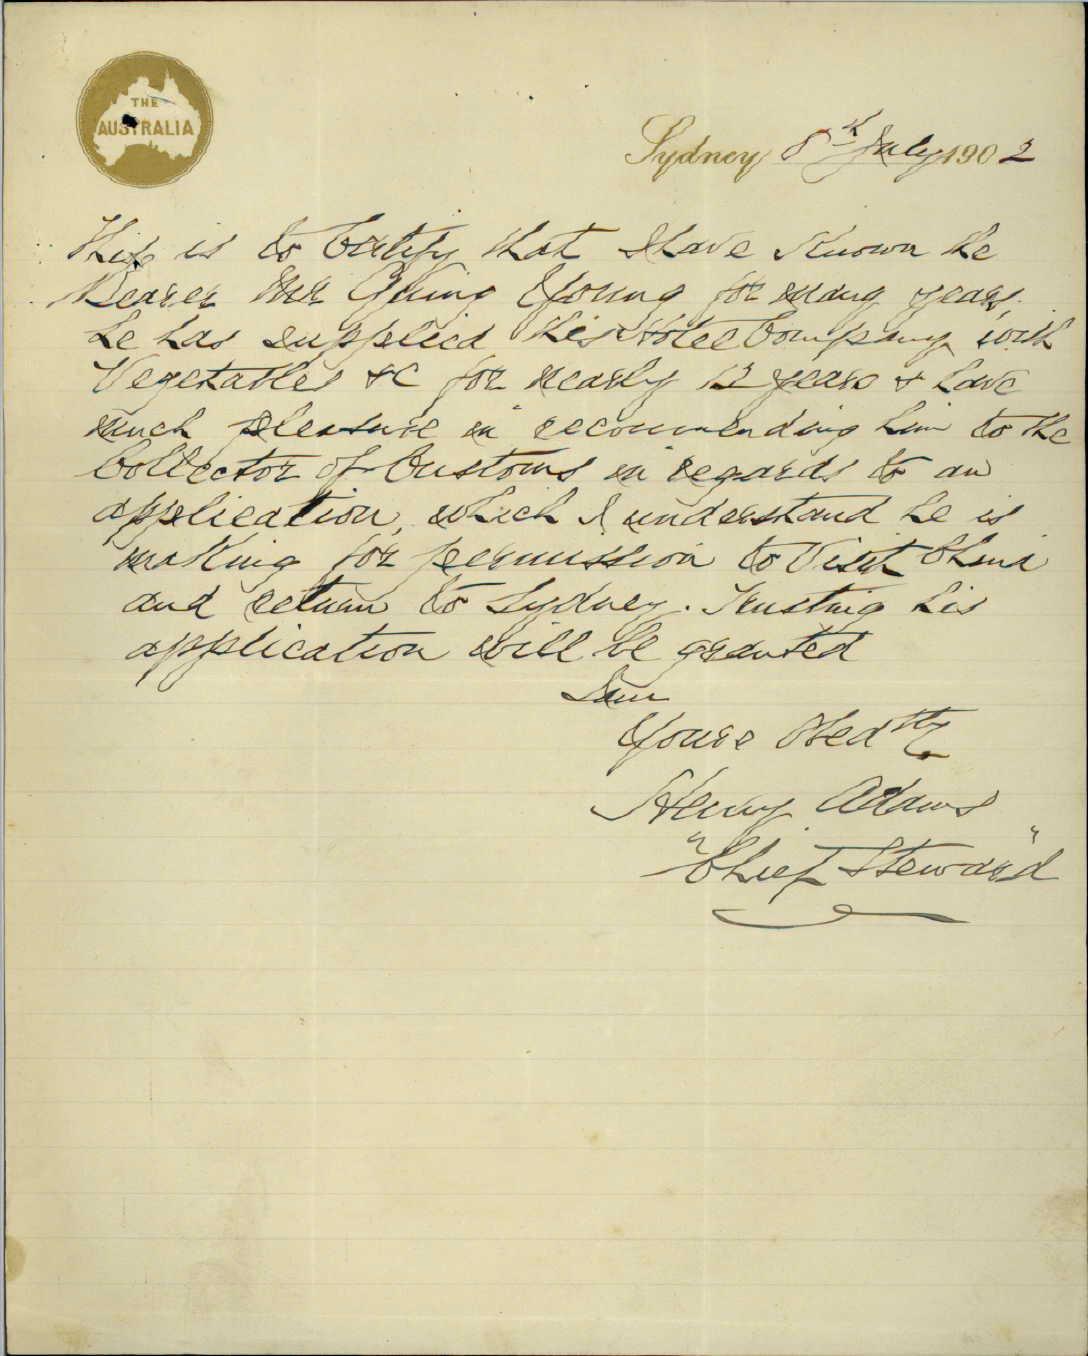 THE
AUSTRALIA
Sydney 8th July 1902
This is to Certify that I have Known the
Bearer Mr Gning Young for many years.
he has supplied this Hotel Company with
Vegetables &C for nearly 12 years & have
much pleasure in recommending him to the
Collector of Customs in regards to an
application, which I understand he is
making for permission to Visit China
and return to Sydney. Trusting his
application will be granted
I am
Yours Obedtly
Henry Adams
"Chief Steward"